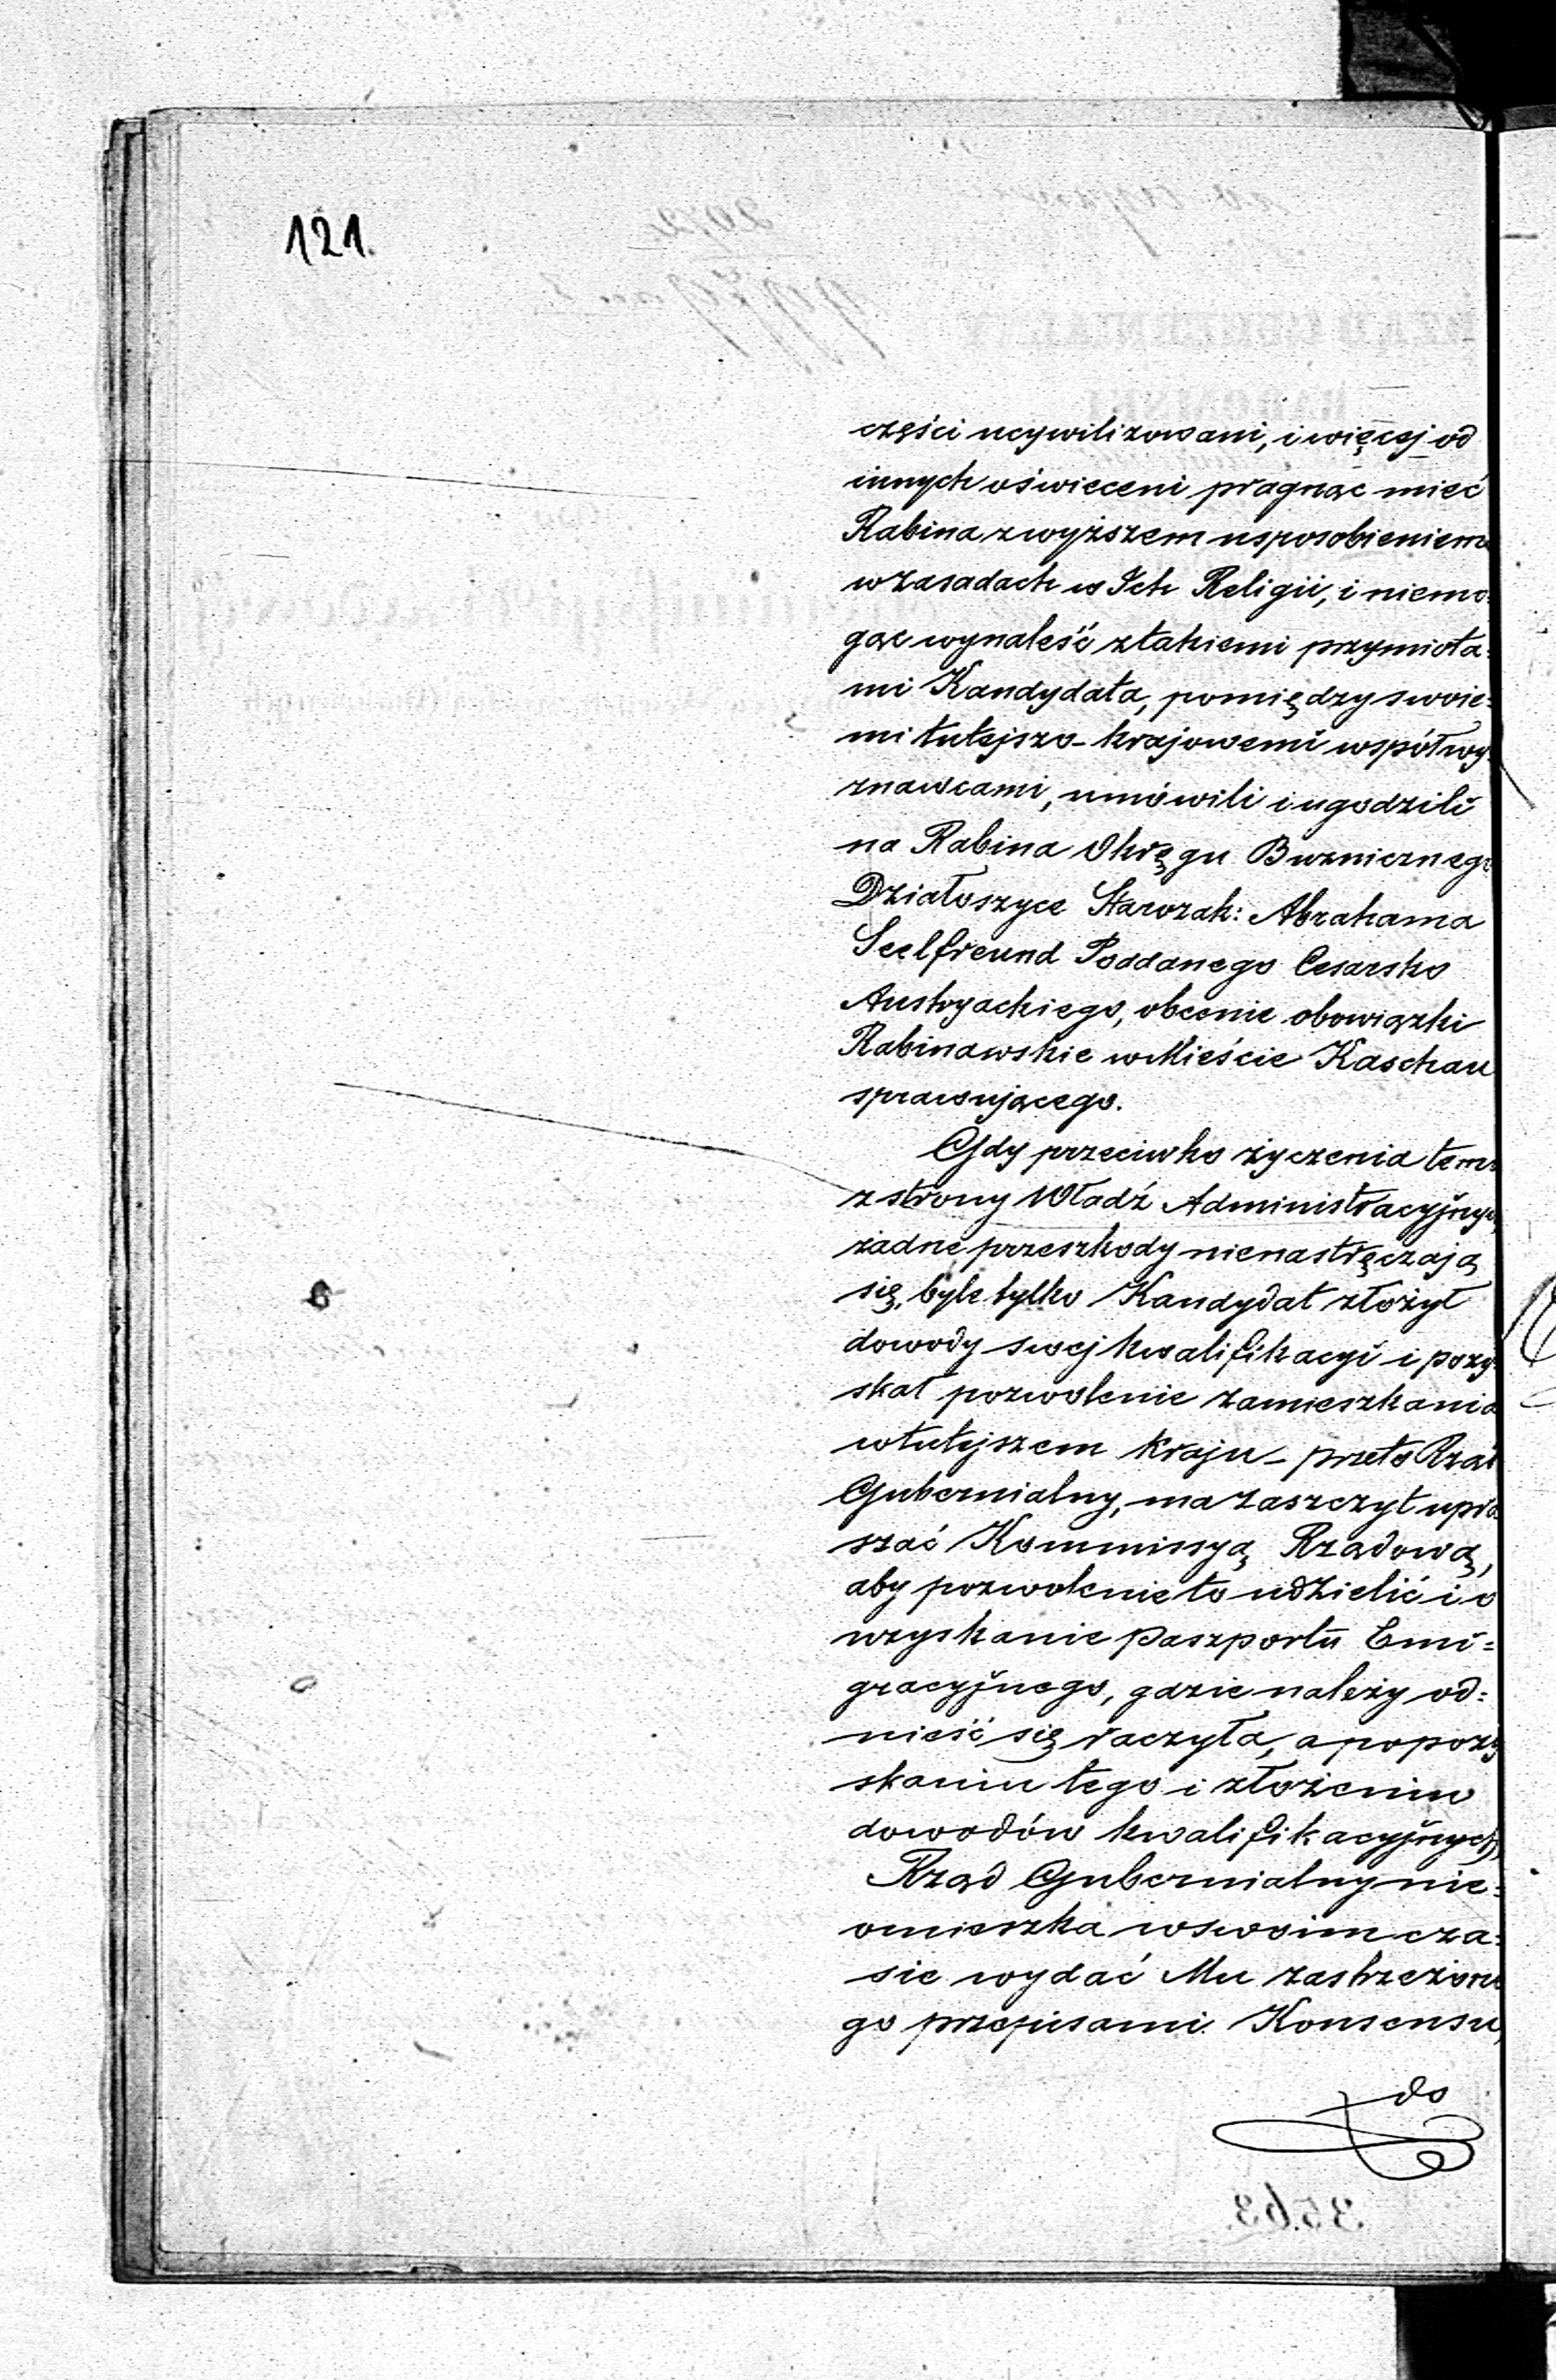 121.
części ucywilizowani, i więcej od
innych oświeceni pragnąc mieć
Rabina z wyższem usposobieniem
w zasadach w Ich Religii, i niemo:
gąc wynaleść z takiemi przymiota:
mi Kandydata, pomiędzy swoie:
mi tutejszo-krajowemi współwy:
znawcami, umówili i ugodzili
na Rabina Okręgu Bużnicznego
Działoszyce Starozak: Abrahama
Seelfreund Poddanego Cesarsko
Austryackiego, obcenie obowiązki
Rabinawskie w Mieście Kaschau
sprawującego.
Gdy przeciwko życzenia temu
z strony Władź Administracyjnych
żadne przeszkody nienastręczają
się, byle tylko Kandydat złożył
dowody swej kwalifikacyi i pozy:
skał pozwolenie zamieszkania
w tutejszem Kraju - przeto Rząd
Gubernialny, ma zaszczyt upra:
szać Kommissyą Rządową,
aby pozwolenie to udzielić i o
wzyskanie Paszportu Emi:
gracyjnego, gdzie należy od:
nieść się raczyła, a po pozy
skaniu tego i złożeniu
dowodów kwalifikacyjnych,
Rząd Gubernialny nie:
omieszka w swoim cza:
sie wydać Mu zastrzeżone
go przepisami Konsensu,
do
3563